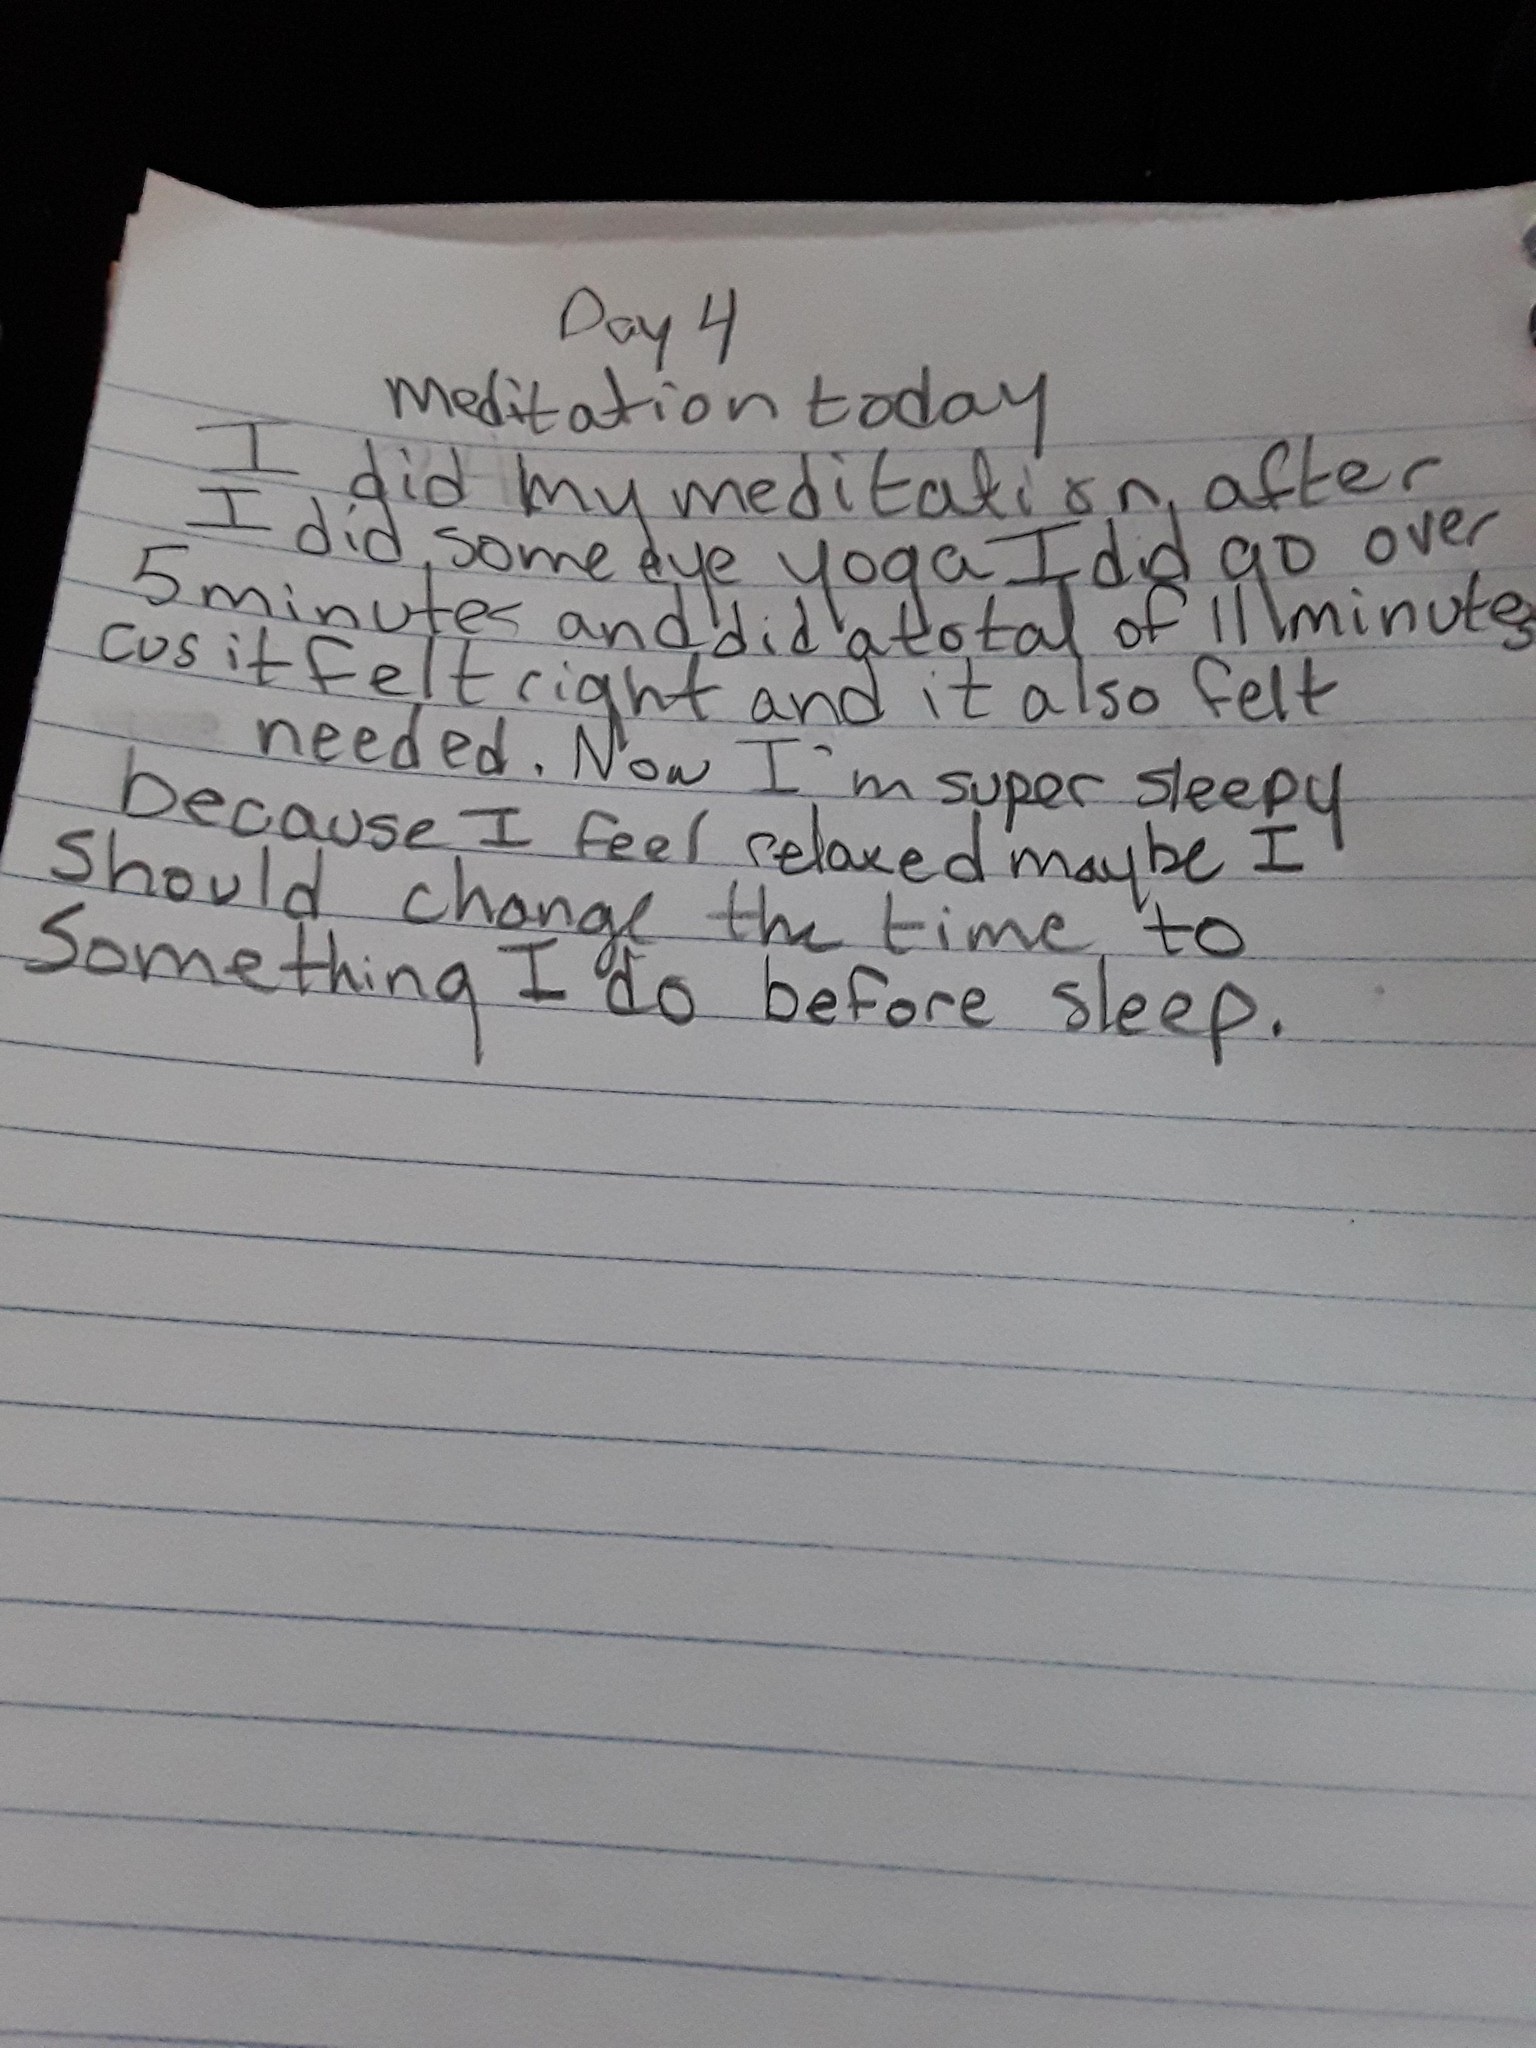 Day 4
Meditation today
I did my meditation, after
I did some eye yoga I did go over
5 minutes and did a total of 11 minutes
cus it felt right and it also felt
needed. Now I'm super sleepy
because I feel relaxed maybe I
should change the time to
something I do before sleep.